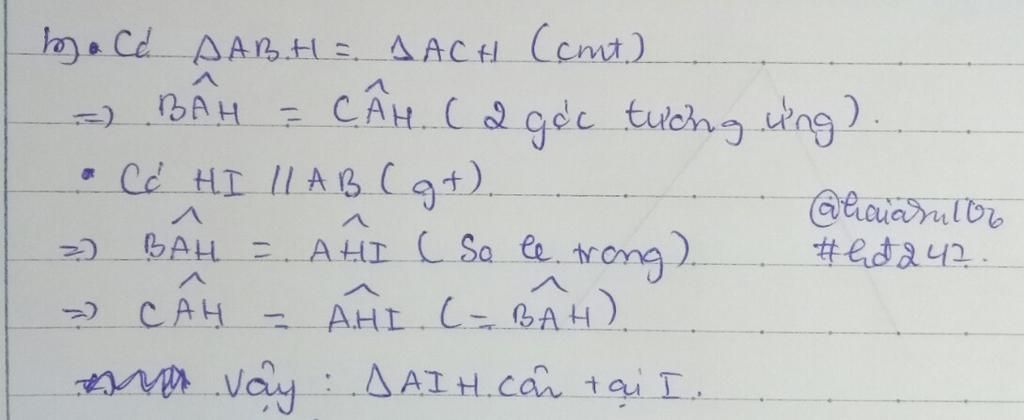 b) • Có ΔABH = ΔACH (cmt)
=) BÂH = CÂH (2 góc tương ứng).
• Có HI // AB (gt)
=) BÂH = AĤI (So le trong)
=) CÂH = AĤI (= BÂH)
Vậy : ΔAIH cân tại I.
#hđ247.